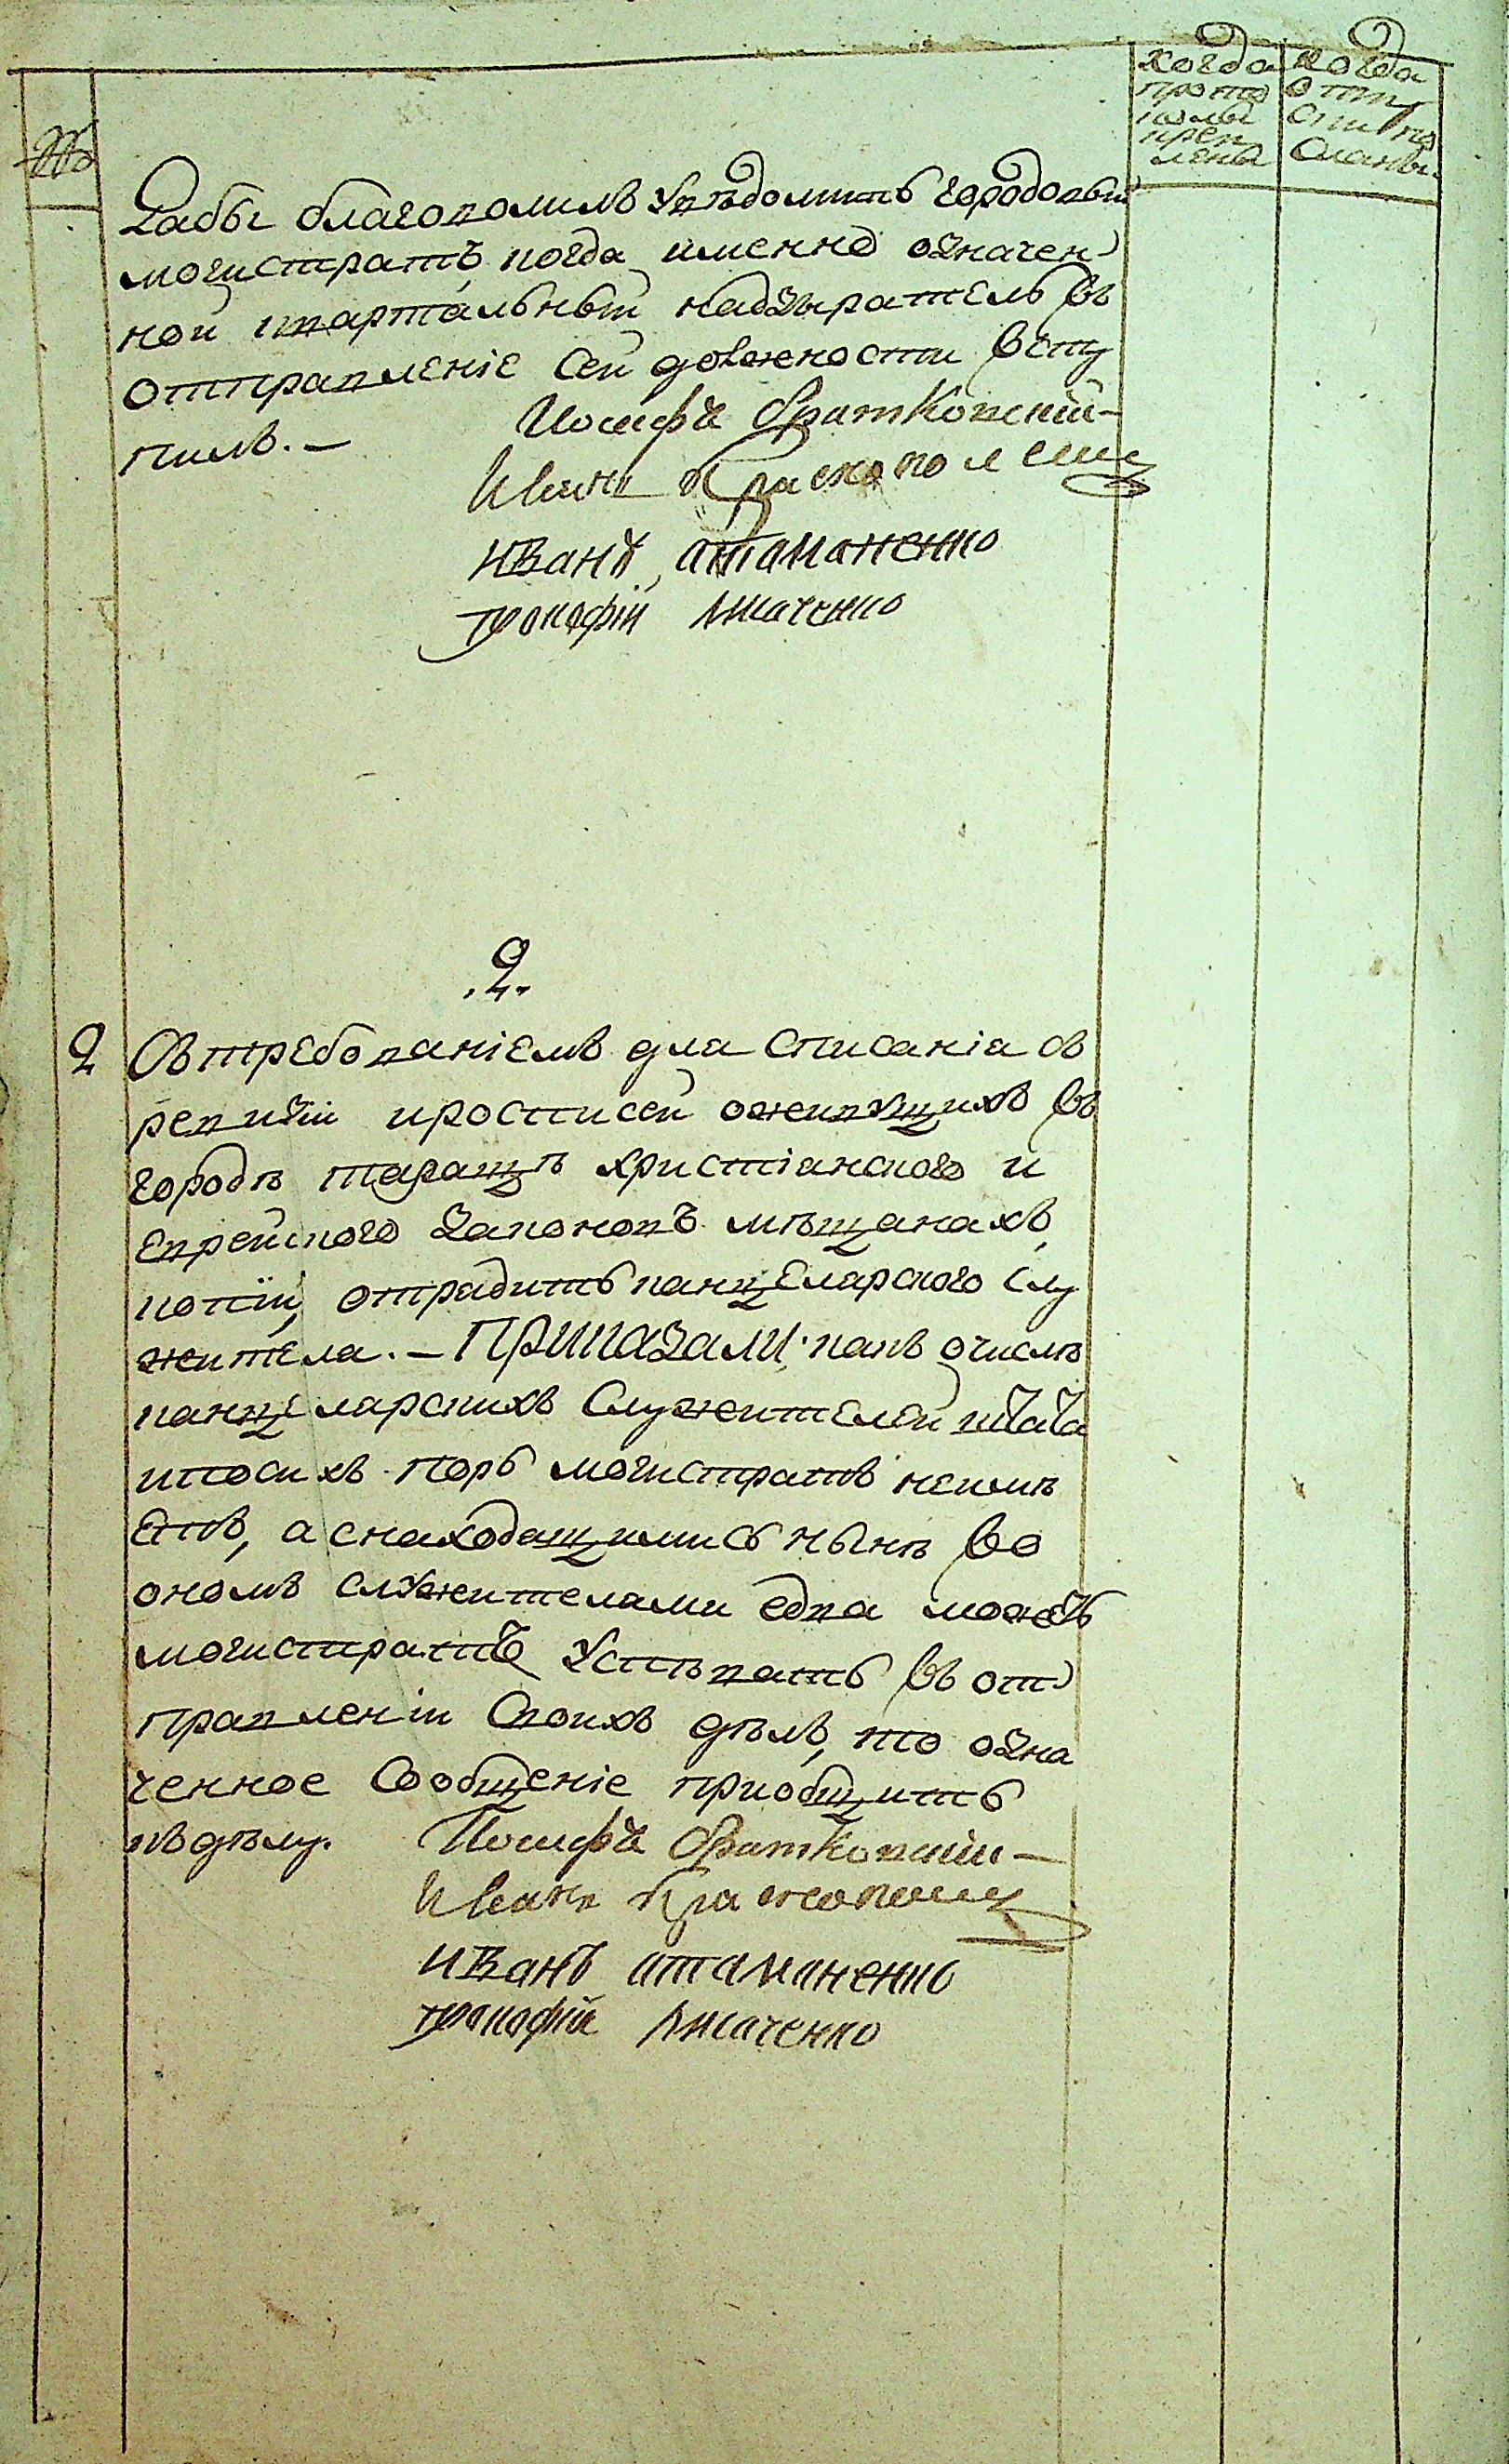 №
когда
прото
колы
креп
лены
когда
отп
ски по
сланы
дабы благоволилъ увѣдомить городовый
магистратъ, когда именно означен
ной квартальный надзыратель въ
отправленіе сей должности всту
пилъ. —
Иосифъ Братковский —
Иванъ
Иванъ атаманенко
прокофій лисаченко
.2.
2
Съ требованіемъ для списанія съ
ревизіи и росписей о живущихъ въ
городѣ таращѣ христіанского и
еврейского законовъ мѣщанахъ,
копіи, отрядить канцелярского слу
жителя. — ПРИКАЗАЛИ: какъ о числѣ
канцелярскихъ служителей указа
и до сихъ поръ магистратъ неимѣ
етъ, а с находящимись нынѣ во
ономъ служителями едва можетъ
магистратъ успѣвать въ от
правленіи своихъ дѣлъ, то озна
ченное сообщеніе приобщить
къ дѣлу.
Иосифъ Братковский —
Иванъ
Иванъ атаманенко
прокофій лисаченко